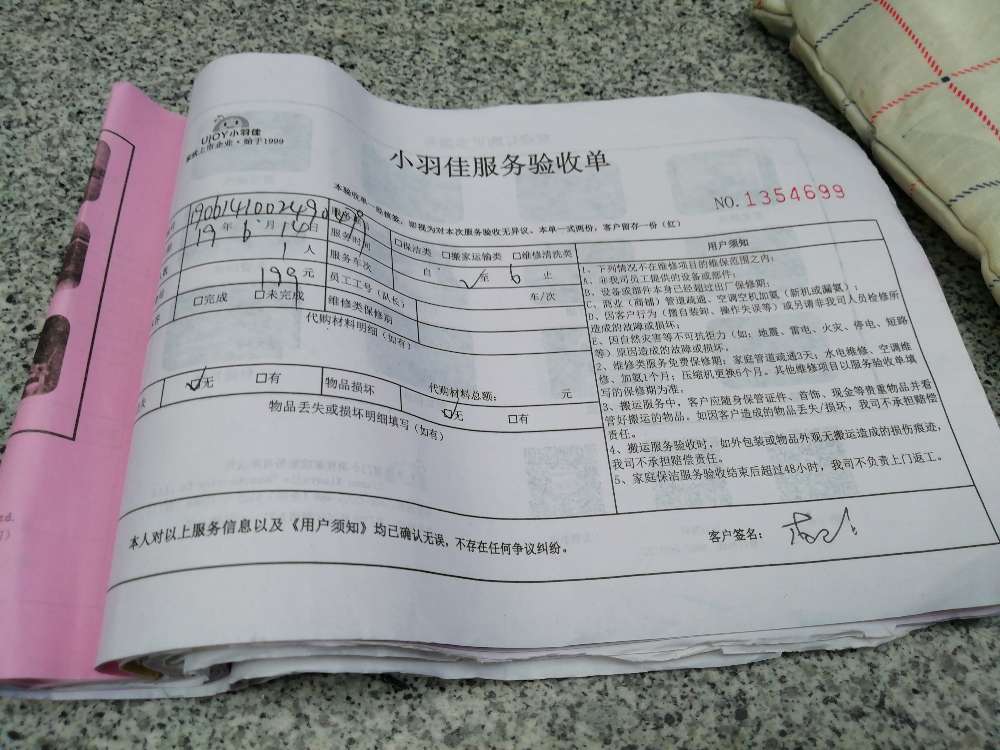 UJOY小羽佳
家政上市企业·始于1999
小羽佳服务验收单
NO.1354699
本验收单一经核签，即视为对本次服务验收无异议。本单一式两份，客户留存一份（红）
□保洁类 □搬家运输类 □维修清洗类
19年6月14日 服务时间 自 至 6 止
1人 服务车次 车/次
199元 员工工号（队长）
□完成 □未完成 维修类保修期
代购材料明细（如有）
代购材料总额： 元
☑无 □有 物品损坏 ☑无 □有
物品丢失或损坏明细填写（如有）
用户须知
1、下列情况不在维修项目的维保范围之内：
A、非我司员工提供的设备或部件；
B、设备或部件本身已经超过出厂保修期；
C、商业（商铺）管道疏通、空调空机加氨（新机或漏氨）；
D、因客户行为（擅自装卸、操作失误等）或另请非我司人员检修所
造成的故障或损坏；
E、因自然灾害等不可抗拒力（如：地震、雷电、火灾、停电、短路
等）原因造成的故障或损坏。
2、维修类服务免费保修期：家庭管道疏通3天；水电维修、空调维
修、加氨1个月；压缩机更换6个月。其他维修项目以服务验收单填
写的保修期为准。
3、搬运服务中，客户应随身保管证件、首饰、现金等贵重物品并看
管好搬运的物品。如因客户造成的物品丢失/损坏，我司不承担赔偿
责任。
4、搬运服务验收时，如外包装或物品外观无搬运造成的损伤痕迹，
我司不承担赔偿责任。
5、家庭保洁服务验收结束后超过48小时，我司不负责上门返工。
本人对以上服务信息以及《用户须知》均已确认无误，不存在任何争议纠纷。
客户签名：